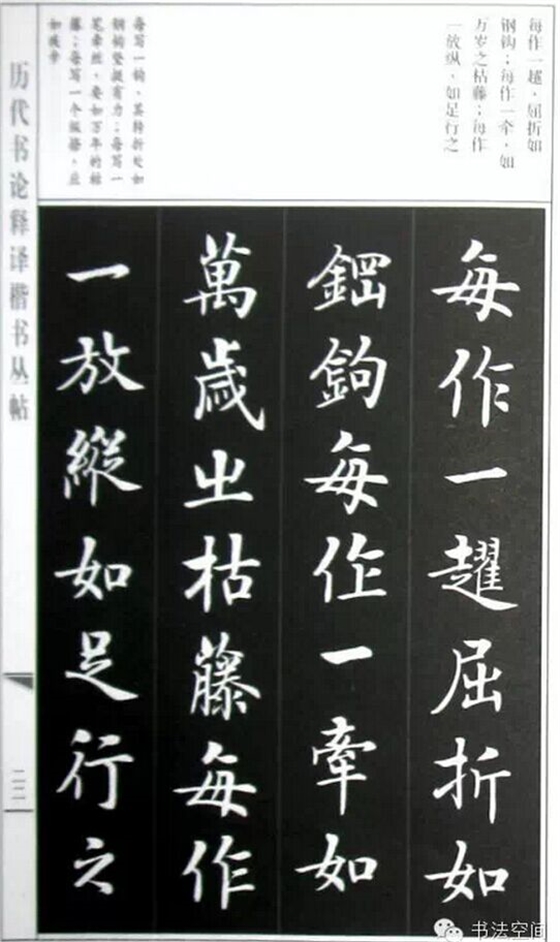 每作一趯，屈折如
钢钩；每作一牵，如
万岁之枯藤；每作
一放纵，如足行之
每写一钩，其转折处如
钢钩坚挺有力；每写一
笔牵丝，要如万年的枯
藤；每写一个纵
每作一趯屈折如
鋼鉤每作一牽如
萬歲之枯藤每作
一放縱如足行之
历代书论释译楷书丛帖
二二
书法空间